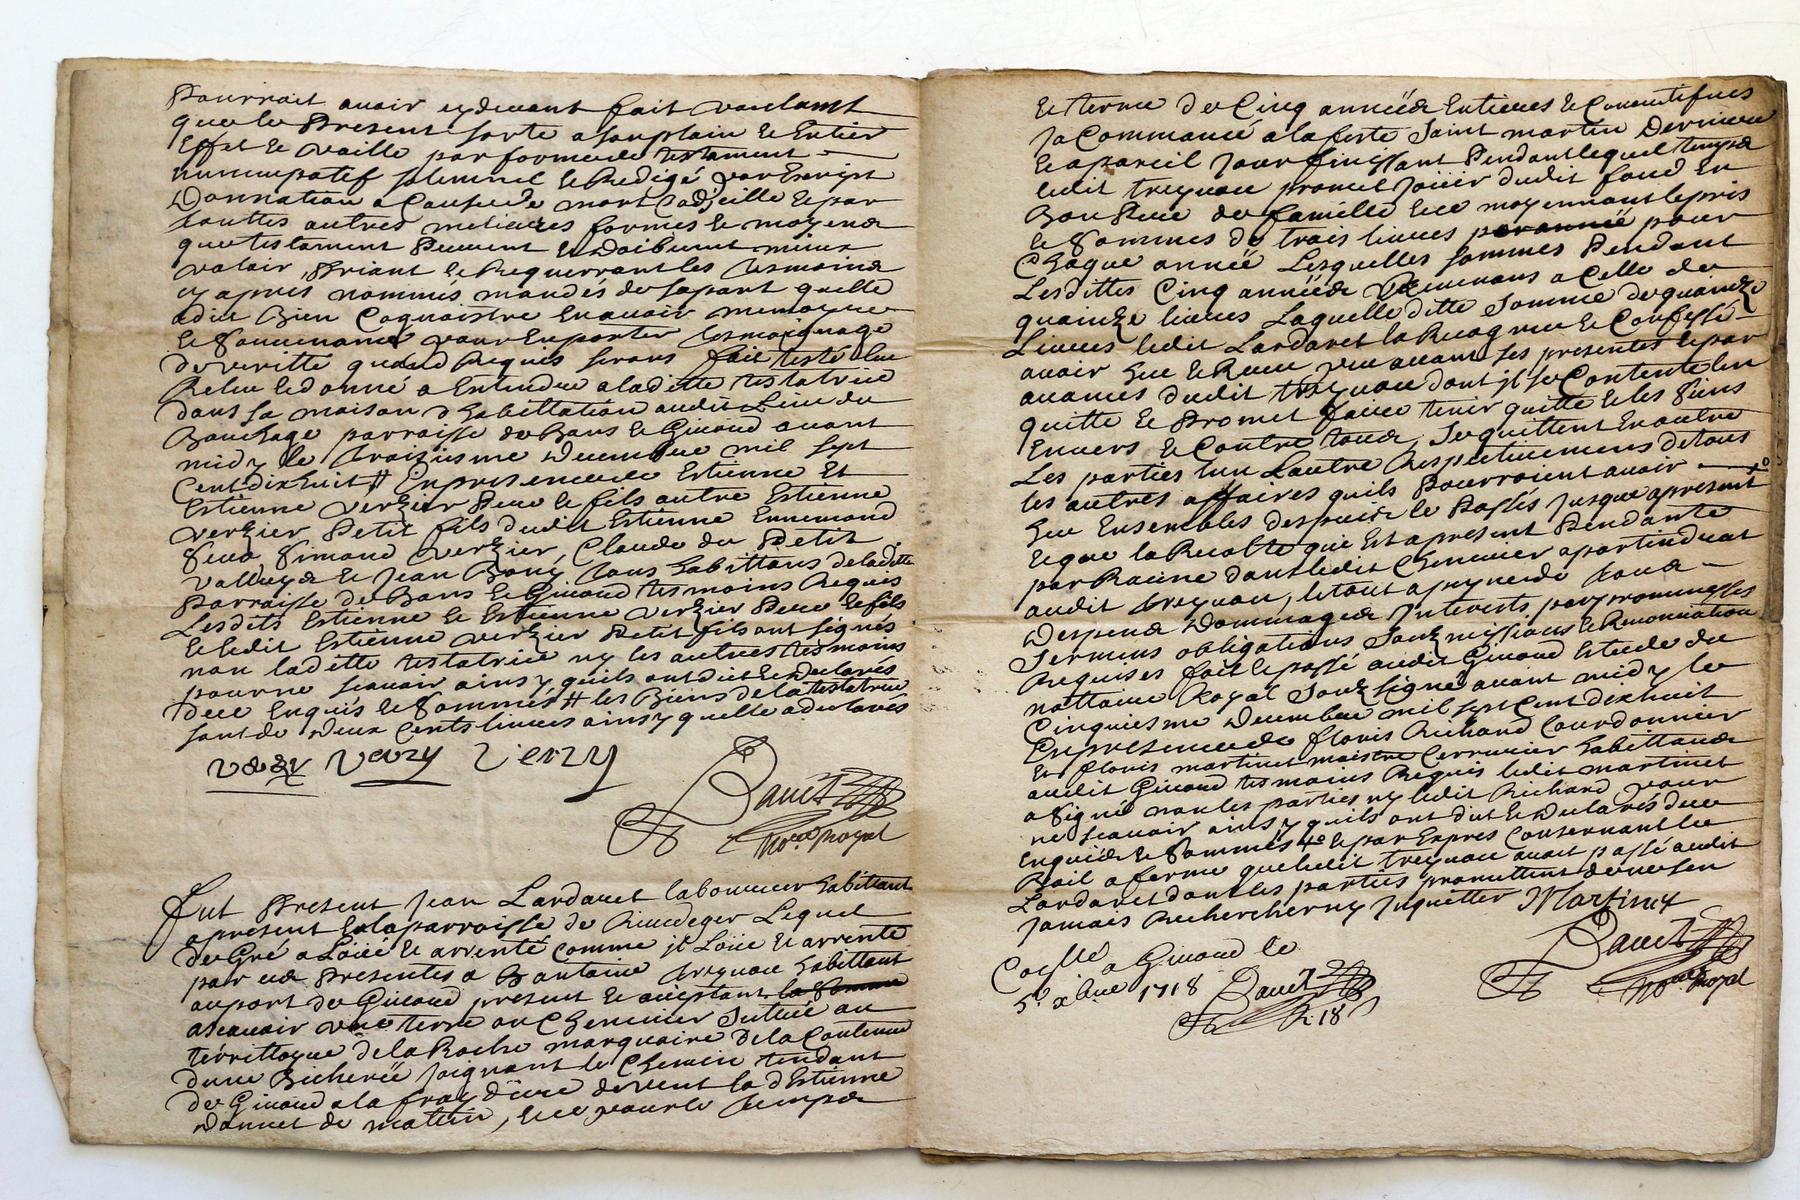 Pourroit avoir cy devant fait voulant
que le Present sorte a son plain & Entier
Effet & vaille par forme de testament
nuncupatif solemnel & Redigé par Escript
Donnation a Cause de mort Codicille & par
touttes autres meliures formes & moyens
que testament Peuvent & Doibvent mieux
valoir, Priant & Requerrant les tesmoins
cy apres nommés mandés de sa part quelle
a dit Bien Cognoistre En avoir memoyre
& souvenance pour En porter tesmoignage
de veritte quand Requis seront fait testé leu
Releu & donné a Entendre a ladite testatrice
dans sa maison d'habittation audit Lieu du
Bouchage parroisse de Bans & Givord avant
midy le troiziesme Decembre mil sept
Cent dix huit # En presence de Estienne Et
Estienne verzier Pere & fils autre Estienne
verzier Petit fils dudit Estienne Ennemond
verzier, Claude du Petit
& Jean Bony tous habittans de ladite
Parroisse de Bans & Givord tesmoins Requis
Lesdits Estienne & Estienne verzier Pere & fils
& ledit Estienne verzier Petit fils ont signés
non ladite testatrice ny les autres tesmoins
pour ne scavoir ainsy quils ont dit & Declarés
de ce Enquis & sommés # les Biens de la testatrice
sont de Deux Cents livres ainsy quelle a declarés
verzy verzy
no.re royal
Fut Present Jean Lardaret laboureur habittant
a present a la parroisse de Rivedeger Lequel
de Gré a Loüé & arrenté comme jl Loüe & arrente
par ces Presentes a Antoine treynou habittant
au port de Givord present & aceptant la somme
a scavoir une terre ou Chenevier scituée au
territtoyre de la Roche marquaire De la Contenue
dune Bicherée joignant le Chemin tendant
de Givord a la de vent la d'Estienne
Donnet de mattin, & ce pour le temps
& terme de Cinq années Entieres & Consecutifves
ja Commancé a la feste Saint martin Derniere
& a pareil jour finissant Pendant lequel temps
ledit treynou promet joüir dudit fond En
Bon Pere de famille & ce moyennant le pris
& sommes de trois livres par année pour
Chaque année Lesquelles sommes Pendant
Lesdittes Cinq années Revenans a Celle de
quainze livres Laquelle ditte somme de quainze
Livres ledit Lardaret la Recognue & Confessé
avoir Heu & Receu avant ses presentes & par
avances dudit treynou dont jl se Contente len
quitte & Promet faire tenir quitte & les siens
Envers & Contre tous, se quittent En outre
Les parties lun Lautre Respectivement de tous
les autres affaires quils Pourroient avoir
Heu Ensembles despuis le Passés jusque a present
& que la Recolte qui Est a present Pendante
par Racine dans ledit Chenevier apartiendrat
audit treynou, le tout a peyne de tous
Despens Dommages Interests par promesses
serments obligations soubzmissions & Renonciation
Requises fait & passé audit Givord Estude du
nottaire Royal Soubzsigné avant midy le
Cinquiesme Decembre mil sept Cent dix huit
En presence de floris Richard Courdonnier
& floris martinet maistre Cerrurier habittans
audit Givord tesmoins Requis ledit martinet
a signé non les parties ny ledit Richard pour
ne scavoir ainsy quils ont dit & Declarés de ce
Enquis & sommés & par Expres Concernant le
Bail a ferme que ledit treynou avoit passé audit
Lardaret dont les parties promettent de ne sen
jamais Rechercher ny jnquietter Martinet
no.re royal
a Givord le
5.e xbre 1718
R 18 s